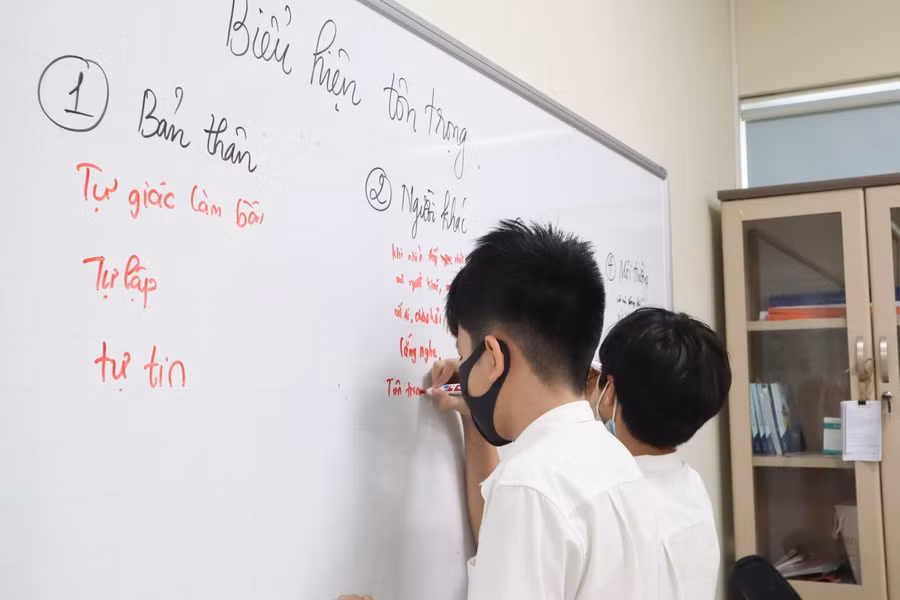 Biểu hiện tôn trọng.
① Bản thân
Tự giác làm bài
Tự lập
tự tin
② Người khác
khi nhìn thấy
người khác,
Lắng nghe.
Tôn trọn
④ Môi trường